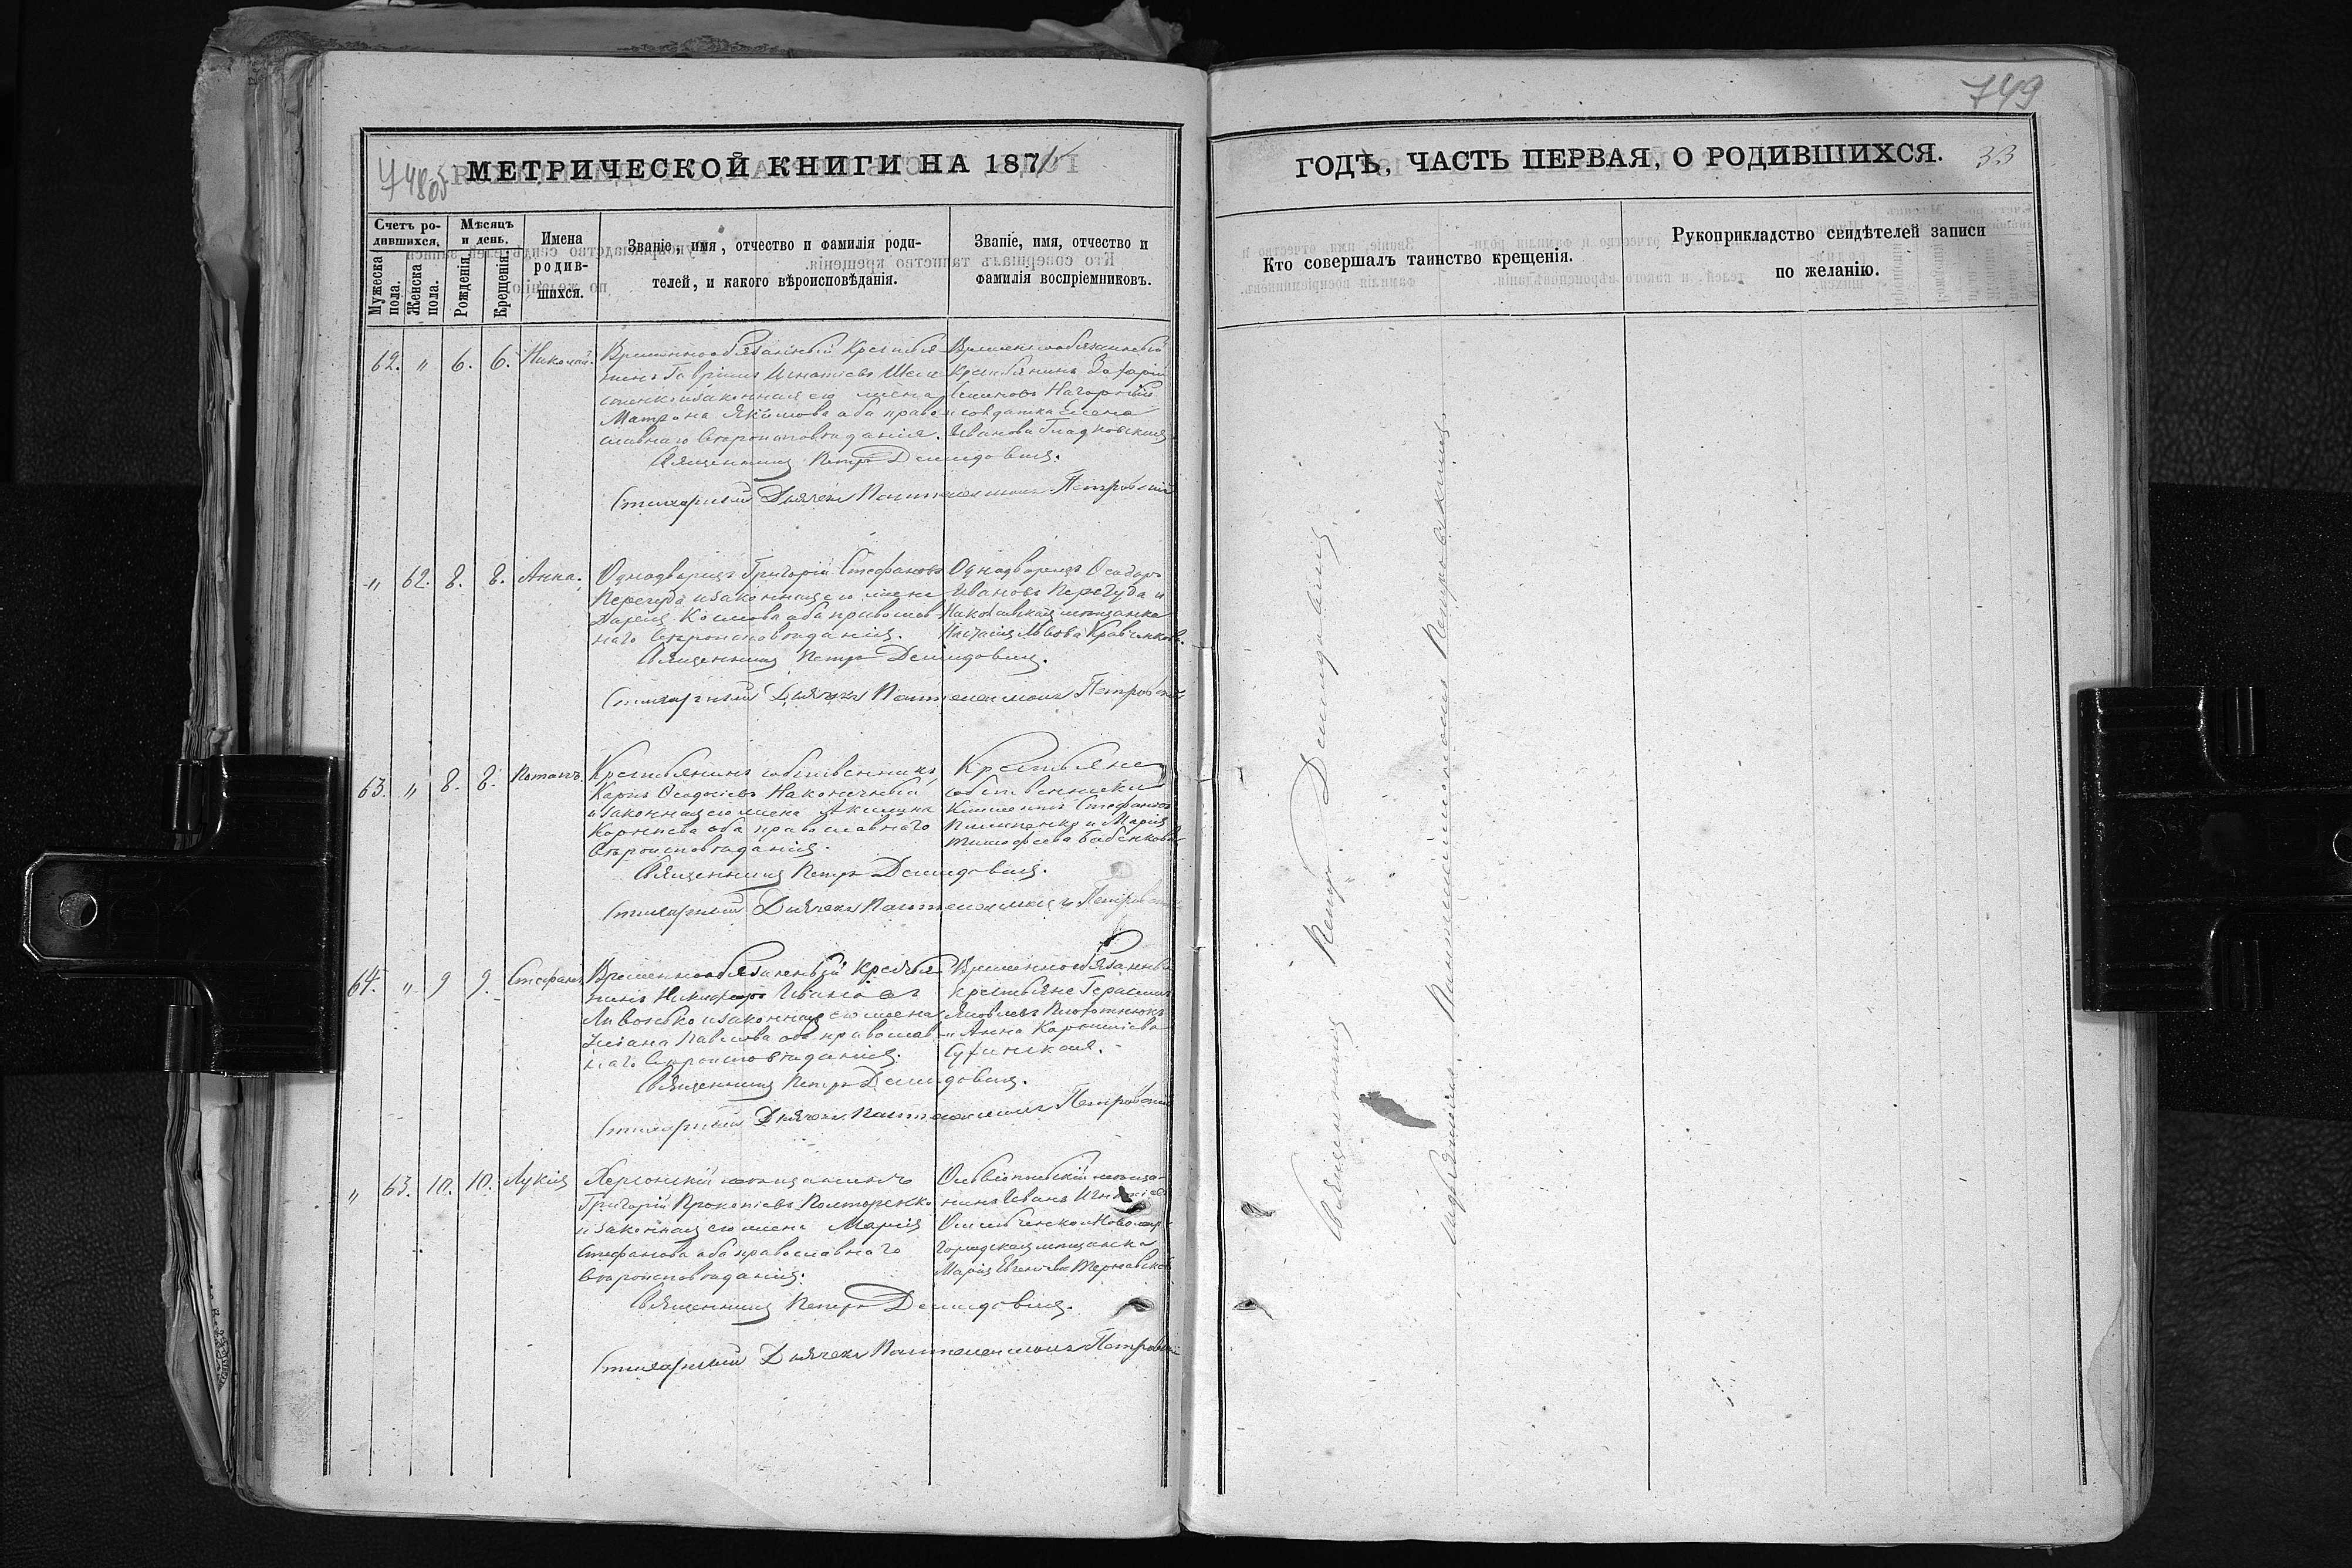 748об
МЕТРИЧЕСКОЙ КНИГИ НА 187
Счетъ ро-
дившихся.
Мѣсяцъ
и день.
Мужеска
пола.
Женска
пола.
Рожденія.
Крещенія.
Имена
родив-
шихся.
Званіе, имя, отчество и фамилія роди-
телей, и какого вѣроисповѣданія.
Званіе, имя, отчество и
фамилія воспріемниковъ.
62. " 6. 6. Николай.
Временнообязанный крестья
нинъ Гавріилъ Игнатіевъ
и законная его жена
Матрона Якимова оба право
славнаго вѣроисповѣданія.
Временнообязанный
крестьянинъ Захарій
Семеновъ Нагорный
и солдатка Елена
Иванова Гладковская
Священникъ Петръ Демидовичъ.
Стихарный Дьячекъ Пантелеимонъ Петровскій
" 62. 8. 8. Анна.
Однодворецъ Григорій Стефановъ
Перегуда и законная его жена
Дарія Космова оба православ
наго вѣроисповѣданія.
Однодворецъ Ѳеодоръ
Ивановъ Перегуда и
Николаевская мѣщанка
Львова Кравченкова.
Священникъ Петръ Демидовичъ.
Стихарный Дьячекъ Пантелеимонъ Петровскій
63. " 8. 8. Потапъ.
Крестьянинъ собственникъ
Карпъ Ѳеодосіевъ Наконечный
и законная его жена Акилина
Корніева оба православнаго
вѣроисповѣданія.
Крестьяне
собственники
Климентъ Стефановъ
Пилипенко и Марія
Тимофеева Бабенкова
Священникъ Петръ Демидовичъ.
Стихарный Дьячекъ Пантелеимонъ Петровскій
64. " 9 9. Стефанъ
Временнообязанный крестья
нинъ Никифоръ Ивановъ
и законная его жена
Уліана Павлова оба православ
наго вѣроисповѣданія.
Временнообязанные
крестьяне Герасимъ
Яковлевъ Плотнюкъ
и Анна Корниліева
Сухинская.
Священникъ Петръ Демидовичъ.
Стихарный Дьячекъ Пантелеимонъ Петровскій
" 63. 10. 10. Лукія
Херсонскій мѣщанинъ
Григорій Прокопіевъ Полторенко
и законная его жена Марія
Стефанова оба православнаго
вѣроисповѣданія.
Ольвіопольскій мѣща
нинъ Иванъ
городская мѣщанка
Марія Евгеніева
Священникъ Петръ Демидовичъ.
Стихарный Дьячекъ Пантелеимонъ Петровскій
749
ГОДѢ, ЧАСТЬ ПЕРВАЯ, О РОДИВШИХСЯ. 33
Кто совершалъ таинство крещенія.
Рукоприкладство свидѣтелей записи
по желанію.
Священникъ Петръ Демидовичъ
Пантелеимономъ Петровскимъ